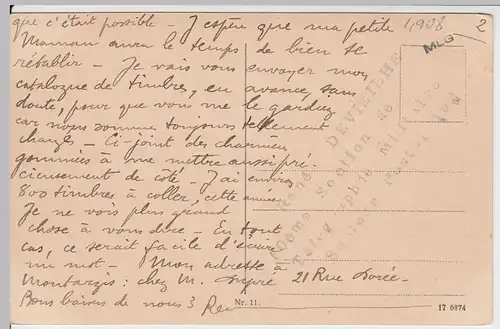 que c'était possible - J'espère que ma petite
Maman aura le temps de bien se
rétablir - Je vais vous envoyer mon
catalogue de timbres, en avance, sans
doute, pour que vous me le gardiez
car nous sommes toujours tellement
changés - Ci-joint des charnières
gommées à me mettre aussi pré-
cieusement de côté - J'ai environ
800 timbres à coller, cette année
Je ne vois plus grand
chose à vous dire - En tout
cas, ce serait facile d'écrire
un mot - Mon adresse à
Montargis : chez M. Dupré 21 Rue Dorée -
Bons baisers de nous 3 René
1,908
2
MLG
René DEVIEILHE
Section de
Télégraphie Militaire
Secteur Postal
Nr. 11.
17 6874